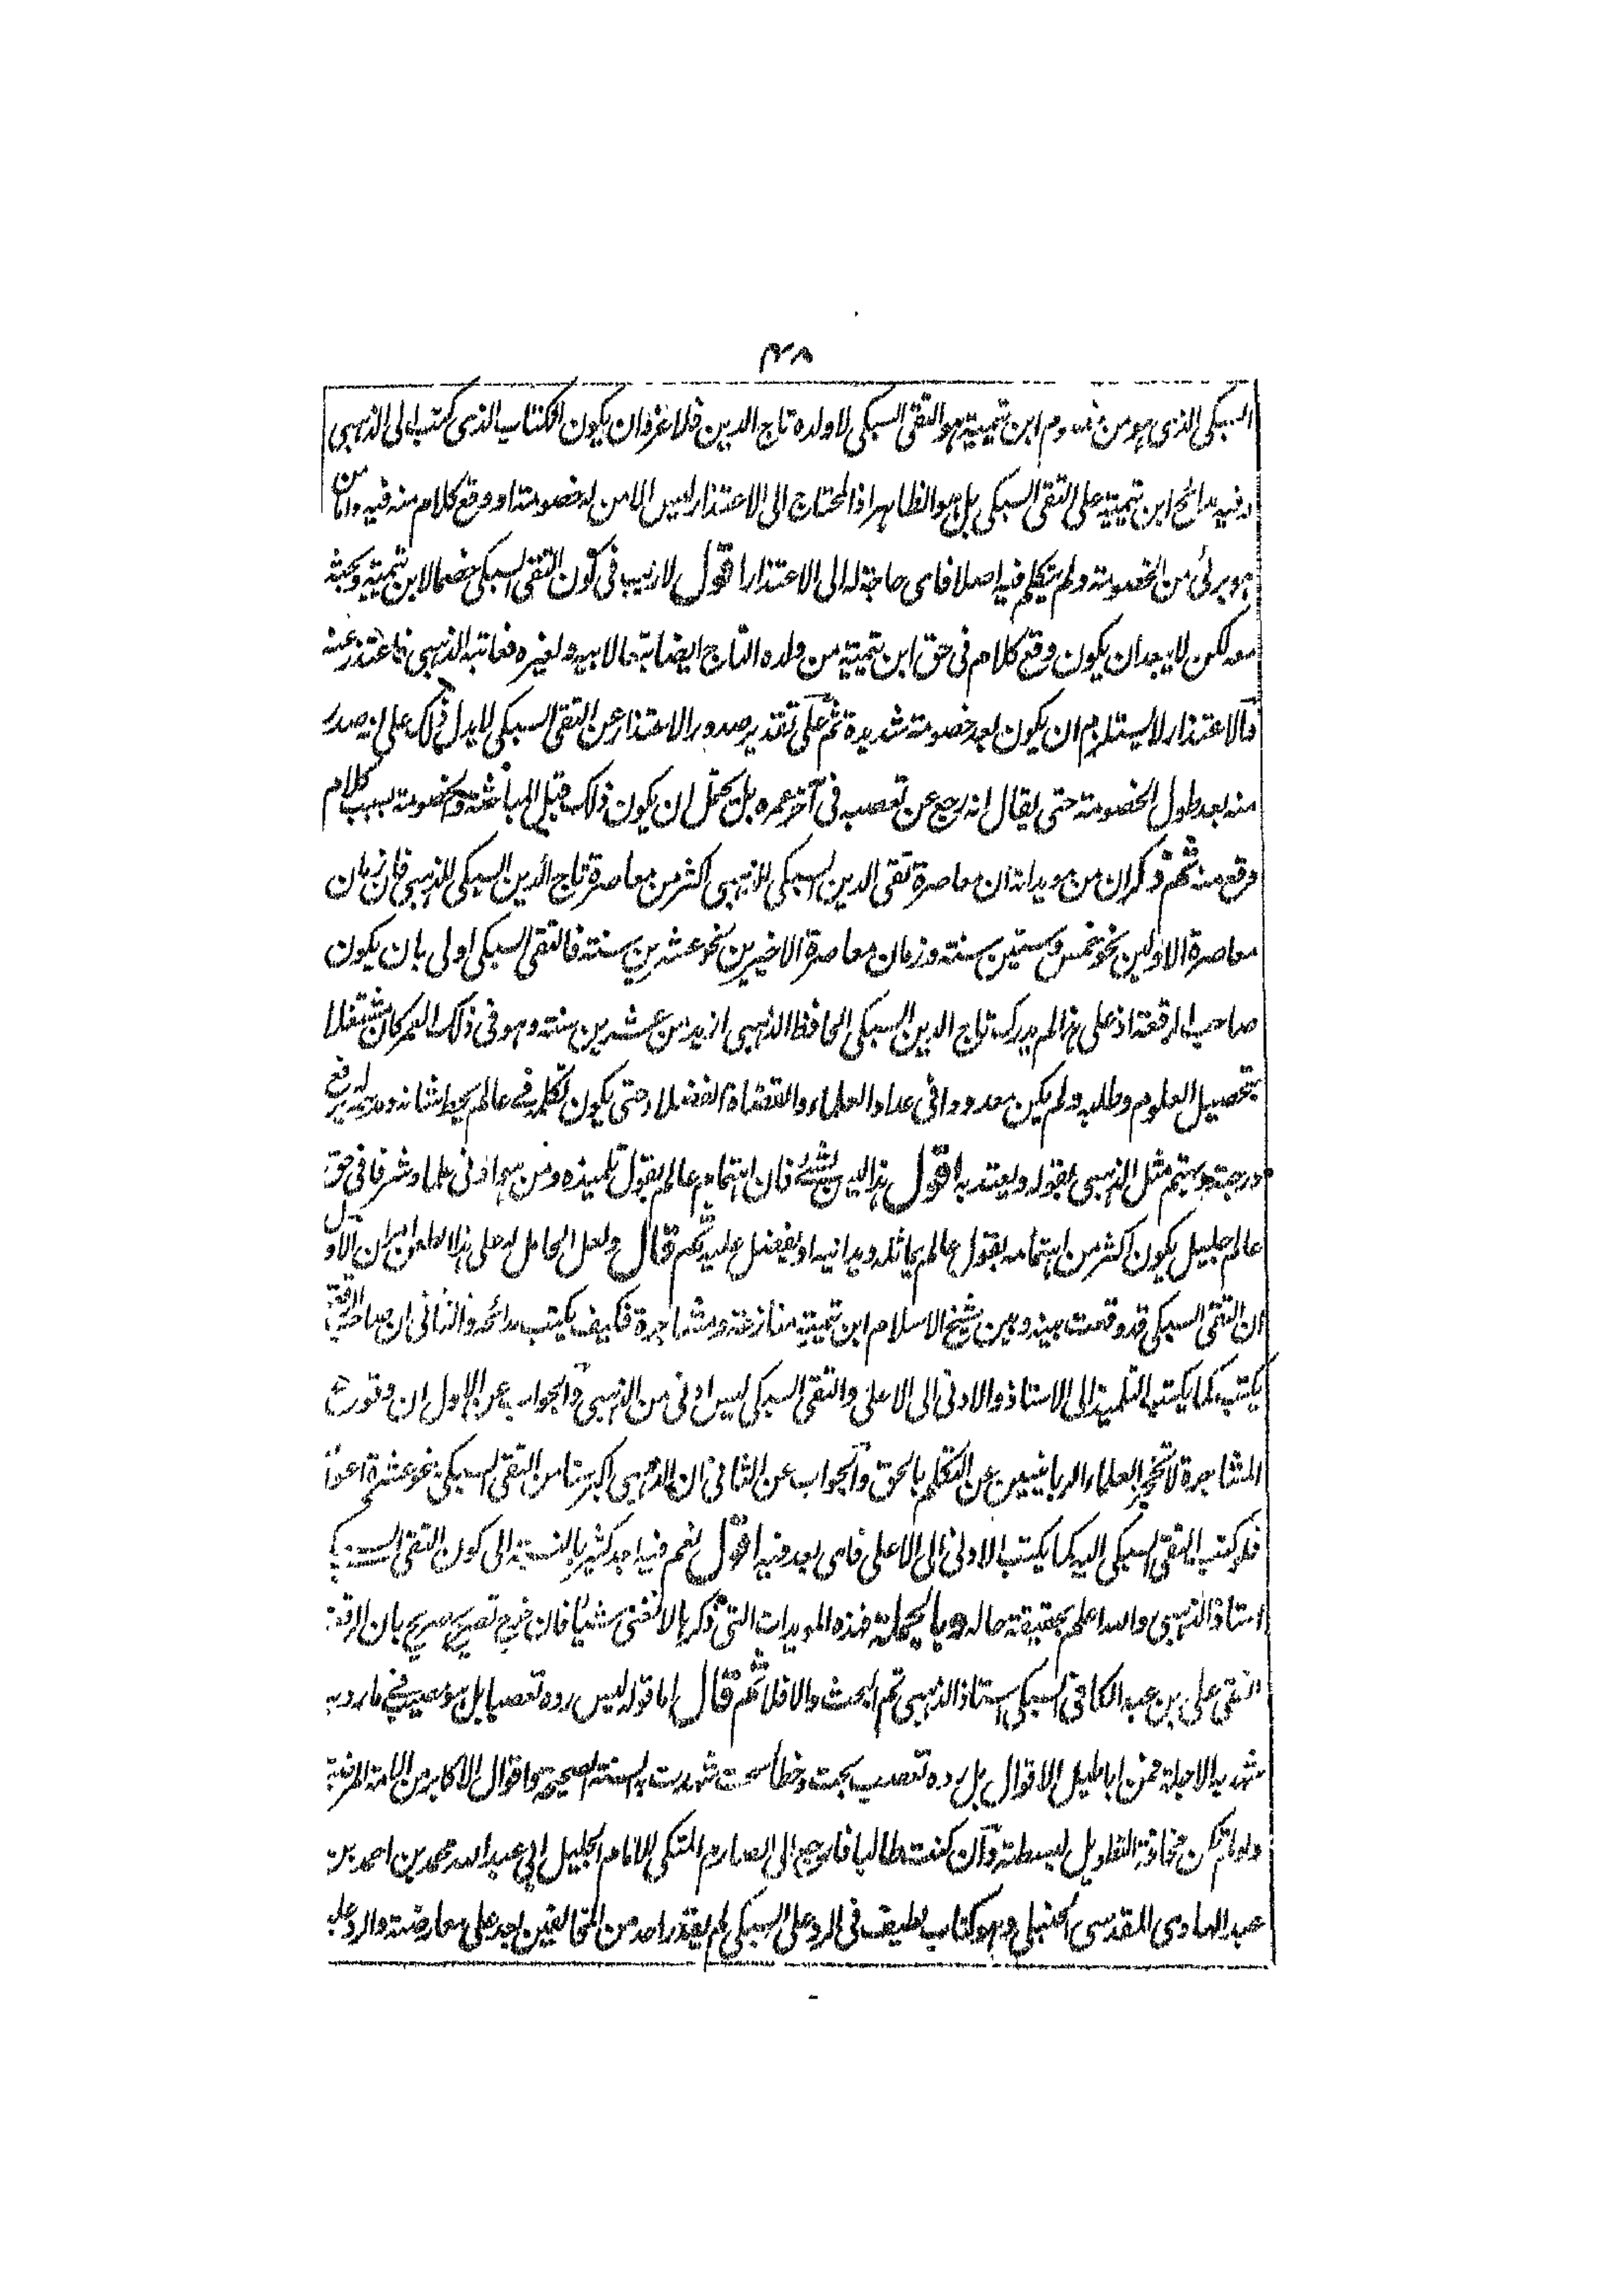 ٢٨
السبكى الذى هو من خصوم ابن تيمية هو التقى السبكى لا ولده تاج الدين فلا غرو ان يكون الكتاب الذى كتب الى الذهبى
وفيه مدائح ابن تيمية على التقى السبكى بل هو الظاهر اذ المحتاج الى الاعتذار ليس الا من له خصومة او وقع كلام منه فيه واما من
هو برئ من الخصومة ولم يتكلم فيه اصلا فاى حاجة له الى الاعتذار اقول لا ريب فى كون التقى السبكى خصما لابن تيمية وبحثه
معه لكن لا يبعد ان يكون وقع كلام فى حق ابن تيمية من ولده التاج ايضا تبعا لابيه ولغيره فعاتبه الذهبى فاعتذر عنه
فالاعتذار لا يستلزم ان يكون بعد خصومة شديدة ثم على تقدير صدور الاعتذار عن التقى السبكى لا يدل ذلك على انه صدر
منه بعد طول الخصومة حتى يقال انه رجع عن تعصبه فى آخر عمره بل يحتمل ان يكون ذلك قبل المباحثة والخصومة بسبب كلام
وقع منه ثم ذكر ان من مويداته ان معاصرة تقى الدين السبكى للذهبى اكثر من معاصرة تاج الدين السبكى للذهبى فان زمان
معاصرة الاولين نحو خمس وستين سنة وزمان معاصرة الاخيرين نحو عشرين سنة فالتقى السبكى اولى بان يكون
صاحب الرقعة اذ على هذا لم يدرك تاج الدين السبكى الحافظ الذهبى ازيد من عشرين سنة وهو فى ذلك العمر كان مشتغلا
بتحصيل العلوم وطلبه ولم يكن معدودا فى عداد العلماء والقضاة الفضلاء حتى يكون تكلمه فى عالم يحط شانه ومدحه يرفع له
درجته ويهتم مثل الذهبى بقوله ويعتد به اقول هذا ليس بشئ فان اهتمام عالم بقول تلميذه ومن هو ادنى علما وشرفا فى حق
عالم جليل يكون اكثر من اهتمامه بقول عالم يماثله ويدانيه او يفضل عليه ثم قال ولعل الحامل له على هذا الطعن امران الاول
ان التقى السبكى قد وقعت بينه وبين شيخ الاسلام ابن تيمية منازعة ومشاجرة فكيف يكتب مدائحه والثانى ان صاحب الرقعة
يكتب كما يكتب التلميذ الى الاستاذ والادنى الى الاعلى والتقى السبكى ليس ادنى من الذهبى والجواب عن الاول ان وقوع
المشاجرة لا تحجر العلماء الربانيين عن التكلم بالحق والجواب عن الثانى ان الذهبى اكبر سنا من التقى السبكى نحو عشرة اعوام
فلو كتب التقى السبكى اليه كما يكتب الادنى الى الاعلى فاى بعد فيه اقول نعم فيه بعد كثير بالنسبة الى كون التقى السبكى
استاذ الذهبى والله اعلم بحقيقة حاله وبالجملة فهذه المويدات التى ذكرها لا تغنى شيئا فان خرج تصريح صريح بان الرقعة
للتقى على بن عبد الكافى السبكى استاذ الذهبى تم البحث والا فلا ثم قال اما قوله ليس رده تعصبا بل هو مصيب فى ما رد به
شهد به الاجلة فمن اباطيل الاقوال بل رده تعصب بحت وخطأ سحت شهدت به السنة الصحيحة واقوال الاكابر من الامة المرضية
ولو لم تكن مخافة التطويل لبسطته وان كنت طالبا فارجع الى الصارم المنكى للامام الجليل ابى عبد الله محمد بن احمد بن
عبد الهادى المقدسى الحنبلى وهو كتاب لطيف فى الرد على السبكى لم يقدر احد من المخالفين بعد على معارضته والرد عليه